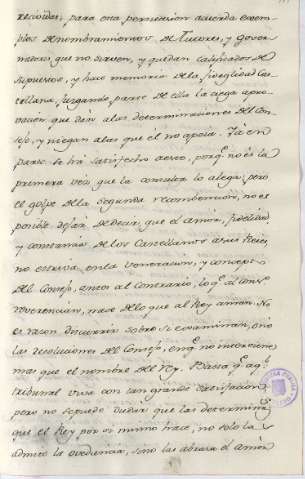 recividas; para esta persuasion acuerda exem
plos de nombramientos de Tutores, y gover
nadores, que no sirven, y quedan calificados de
supuestos, y hace memoria de la fidelidad Cas
tellana, juzgando parte de ella la ciega apro
vacion que dan alas determinaciones del Con
sejo, y niegan alas que el no apoia. Ya en
parte se há satisfecho aeso, porq. no es la
primera vez que la consulta lo alega; pero
el golpe de la segunda reconbencion, no es
posible dejar de decir, que el amor, fidelidad
y constancia de los Castellanos asus Reies,
no estriva en la veneracion, y concepto
del Consejo, antes al contrario, lo q. al Consº
reverencian, nace de lo que al Rey aman. No
es razon discurrir sobre si examinan, ó no
las resoluciones del Consejo, en q. no interviene
mas que el nombre del Rey. Basta q. aq.
tribunal viva con tan grande satisfacion
pero no se puede dudar que las determina
que el Rey por si mismo hace, no solo las
admite la ovediencia, sino las abraza el amor